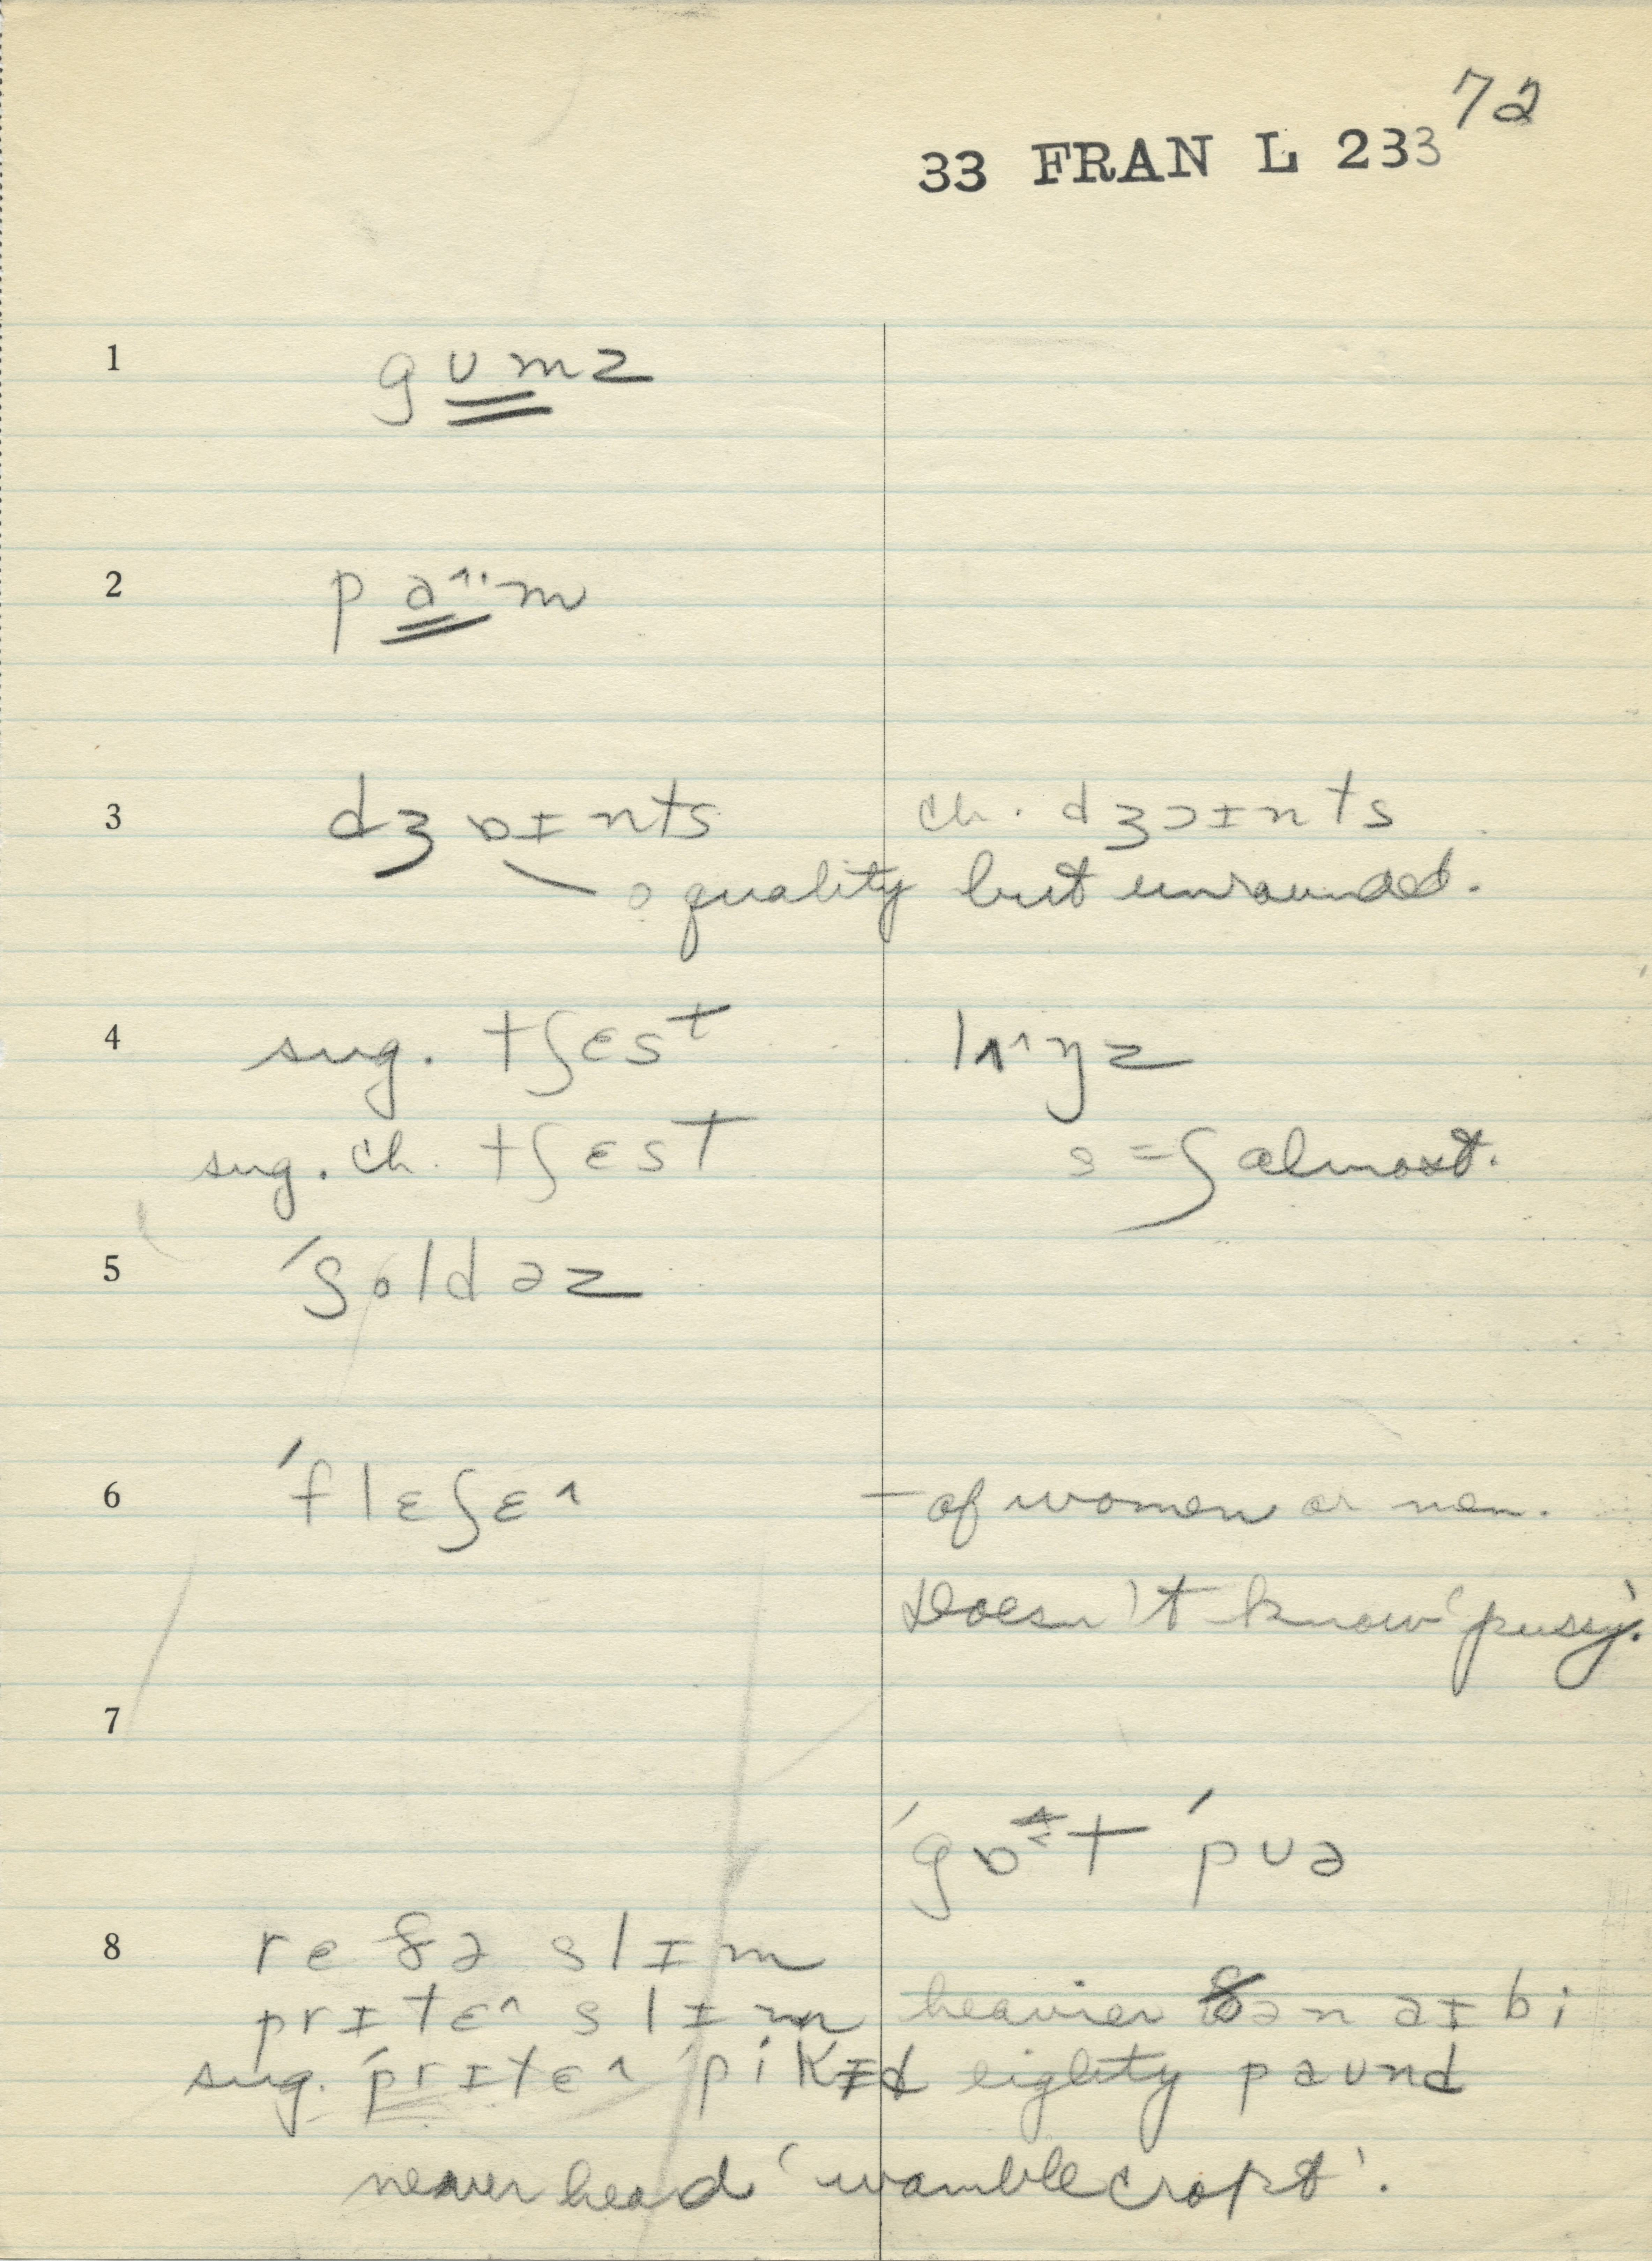 72
33 FRAN L 233
1 gʊmz
2 pa^·m
3 dʒɒɪnts ch. dʒɔɪnts
o quality but unrounded.
4 sug. tʃɛst lʌ^ŋz
sug. ch. tʃɛst s = ʃ almost.
5 ˈʃoldəz
6 ˈflɛʃɛ^ – of women or men.
Doesn't know 'pussy'.
7
ˈgɒt ˈpʊə
8 reðə slɪm
prɪtɛ^ slɪm heavier ðən əɪ bi
sug. ˈprɪtɛ^ ˈpikɪd eighty paʊnd
never heard 'wamblecropt'.